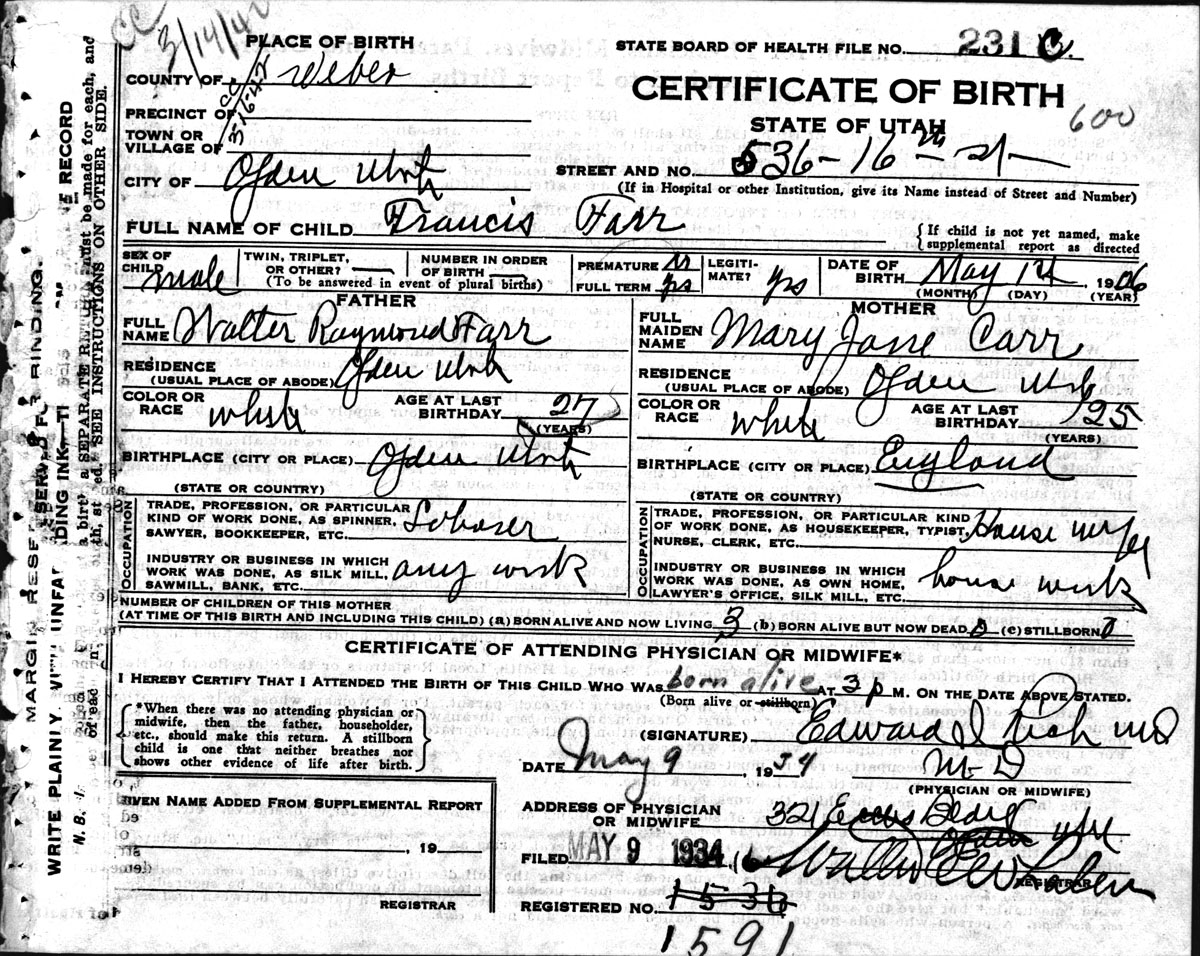 CC
3/14/42
PLACE OF BIRTH
STATE BOARD OF HEALTH FILE NO. 231 C.
COUNTY OF Weber
CC
3-16-42
CERTIFICATE OF BIRTH
600
PRECINCT OF
STATE OF UTAH
TOWN OR
VILLAGE OF
CITY OF Ogden Utah
STREET AND NO. 536-16 th st
(If in Hospital or other Institution, give its Name instead of Street and Number)
FULL NAME OF CHILD Francis Farr
{If child is not yet named, make
supplemental report as directed
SEX OF CHILD male
TWIN, TRIPLET, OR OTHER?
(To be answered in event of plural births)
NUMBER IN ORDER OF BIRTH
PREMATURE
FULL TERM ys
LEGITI-MATE? ys
DATE OF BIRTH May 14, 1906
(MONTH) (DAY) (YEAR)
FATHER
FULL NAME Walter Raymond Farr
RESIDENCE (USUAL PLACE OF ABODE) Ogden Utah
COLOR OR RACE white
AGE AT LAST BIRTHDAY 27 (YEARS)
BIRTHPLACE (CITY OR PLACE) Ogden Utah
(STATE OR COUNTRY)
OCCUPATION
TRADE, PROFESSION, OR PARTICULAR
KIND OF WORK DONE, AS SPINNER, Laborer
SAWYER, BOOKKEEPER, ETC.
INDUSTRY OR BUSINESS IN WHICH
WORK WAS DONE, AS SILK MILL, any work
SAWMILL, BANK, ETC.
MOTHER
FULL MAIDEN NAME Mary Jane Carr
RESIDENCE (USUAL PLACE OF ABODE) Ogden Utah
COLOR OR RACE white
AGE AT LAST BIRTHDAY 25 (YEARS)
BIRTHPLACE (CITY OR PLACE) England
(STATE OR COUNTRY)
OCCUPATION
TRADE, PROFESSION, OR PARTICULAR KIND
OF WORK DONE, AS HOUSEKEEPER, TYPIST, House wife
NURSE, CLERK, ETC.
INDUSTRY OR BUSINESS IN WHICH
WORK WAS DONE, AS OWN HOME, house work
LAWYER'S OFFICE, SILK MILL, ETC.
NUMBER OF CHILDREN OF THIS MOTHER
(AT TIME OF THIS BIRTH AND INCLUDING THIS CHILD) (a) BORN ALIVE AND NOW LIVING 3 (b) BORN ALIVE BUT NOW DEAD 0 (c) STILLBORN 0
CERTIFICATE OF ATTENDING PHYSICIAN OR MIDWIFE*
I HEREBY CERTIFY THAT I ATTENDED THE BIRTH OF THIS CHILD WHO WAS born alive AT 3 p M. ON THE DATE ABOVE STATED.
(Born alive or stillborn)
*When there was no attending physician or
midwife, then the father, householder,
etc., should make this return. A stillborn
child is one that neither breathes nor
shows other evidence of life after birth.
(SIGNATURE) Edward I Rich MD
DATE May 9, 1934
M.D
(PHYSICIAN OR MIDWIFE)
ADDRESS OF PHYSICIAN OR MIDWIFE 321 Eccles Bldg
GIVEN NAME ADDED FROM SUPPLEMENTAL REPORT
, 19
REGISTRAR
FILED MAY 9 1934
REGISTRAR
REGISTERED NO. 1536
1591
MARGIN RESERVED FOR BINDING.